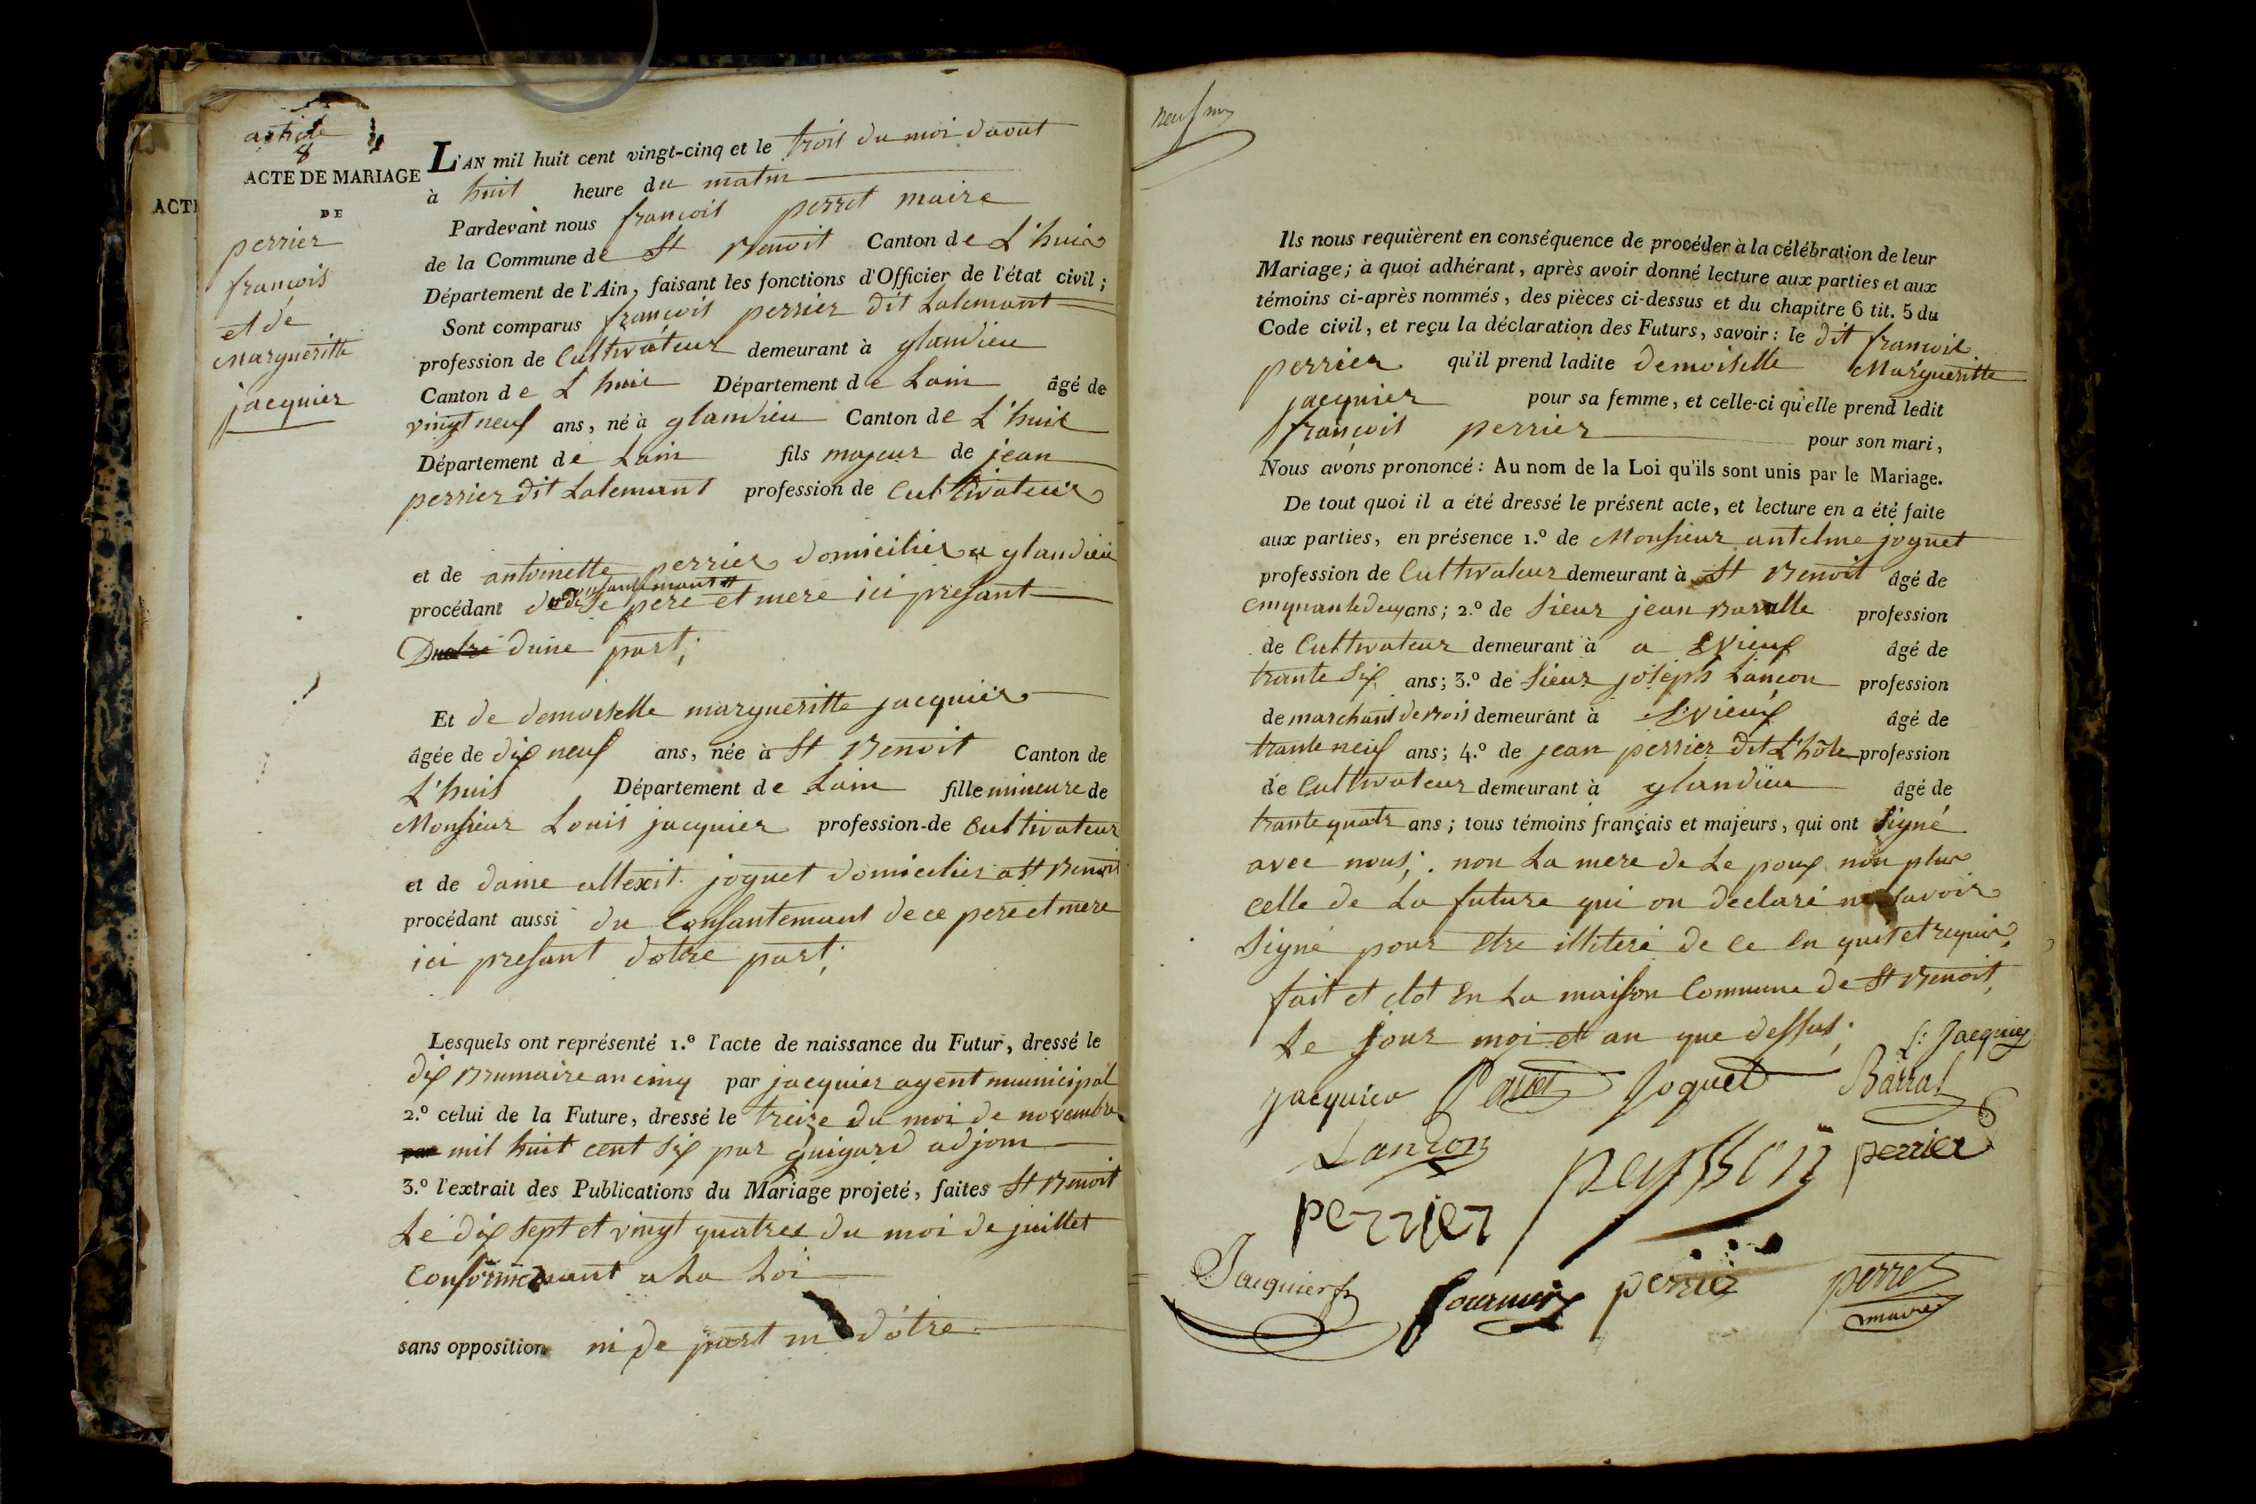 article
8
ACTE DE MARIAGE
DE
perrier
francois
et de
Margueritte
jacquier
ACTE
L'AN mil huit cent vingt-cinq et le trois du moi daout
à huit heure du matin
Pardevant nous françois perret maire
de la Commune de St Benoit Canton de L'huis
Département de l'Ain, faisant les fonctions d'Officier de l'état civil;
Sont comparus françois perrier dit Lalemant
profession de Cultivateur demeurant à glandieu
Canton de L huis Département de Lain âgé de
vingt neuf ans, né à glandieu Canton de L'huis
Département de Lain fils majeur de jean
perrier dit Lalemant profession de Cultivateur
et de antoinette perrier domicilier a glandieu
procédant de se pere et mere ici presant
dune part;
Et de demoiselle margueritte jacquier
âgée de dix neuf ans, née à St Benoit Canton de
L'huis Département de Lain fille mineure de
Monsieur Louis jacquier profession de Cultivateur
et de dame allexit joguet domicilier a St Benoit
procédant aussi du Consantemant de ce pere et mere
ici presant dotre part;
Lesquels ont représenté 1.º l'acte de naissance du Futur, dressé le
dix Brumaire an cinq par jacquier agent municipal
2.º celui de la Future, dressé le treize du moi de novembre
par mil huit cent six par guigard adjoin
3.º l'extrait des Publications du Mariage projeté, faites St Benoit
Le dix sept et vingt quatres du moi de juillet
Conformemant a La Loi
sans opposition ni de part ni dotre
neuf
Ils nous requièrent en conséquence de procéder à la célébration de leur
Mariage; à quoi adhérant, après avoir donné lecture aux parties et aux
témoins ci-après nommés, des pièces ci-dessus et du chapitre 6 tit. 5 du
Code civil, et reçu la déclaration des Futurs, savoir: le dit françois
perrier qu'il prend ladite demoiselle Margueritte
jacquier pour sa femme, et celle-ci qu'elle prend ledit
françois perrier pour son mari,
Nous avons prononcé: Au nom de la Loi qu'ils sont unis par le Mariage.
De tout quoi il a été dressé le présent acte, et lecture en a été faite
aux parties, en présence 1.º de Monsieur antelme joguet
profession de Cultivateur demeurant à St Benoit âgé de
cinquante deux ans; 2.º de Sieur jean Baralle profession
de Cultivateur demeurant à a Evieux âgé de
trante six ans; 3.º de Sieur joseph Lançon profession
de marchant de Bois demeurant à Evieux âgé de
trante neuf ans; 4.º de jean perrier dit L'hôte profession
de Cultivateur demeurant à glandieu âgé de
trante quatr ans; tous témoins français et majeurs, qui ont signé
avec nous; non La mere de Le poux non plus
celle de La future qui on declaré ne savoir
Signé pour etre illiteré de ce en quis et requis
fait et clot en La maison Commune de St Benoit,
Le jour moi et an que dessus;
Jacquier
jacquier Joguet Barral
Lançon peysson perrier
perrier
Jacquier fournier perrier perret
maire